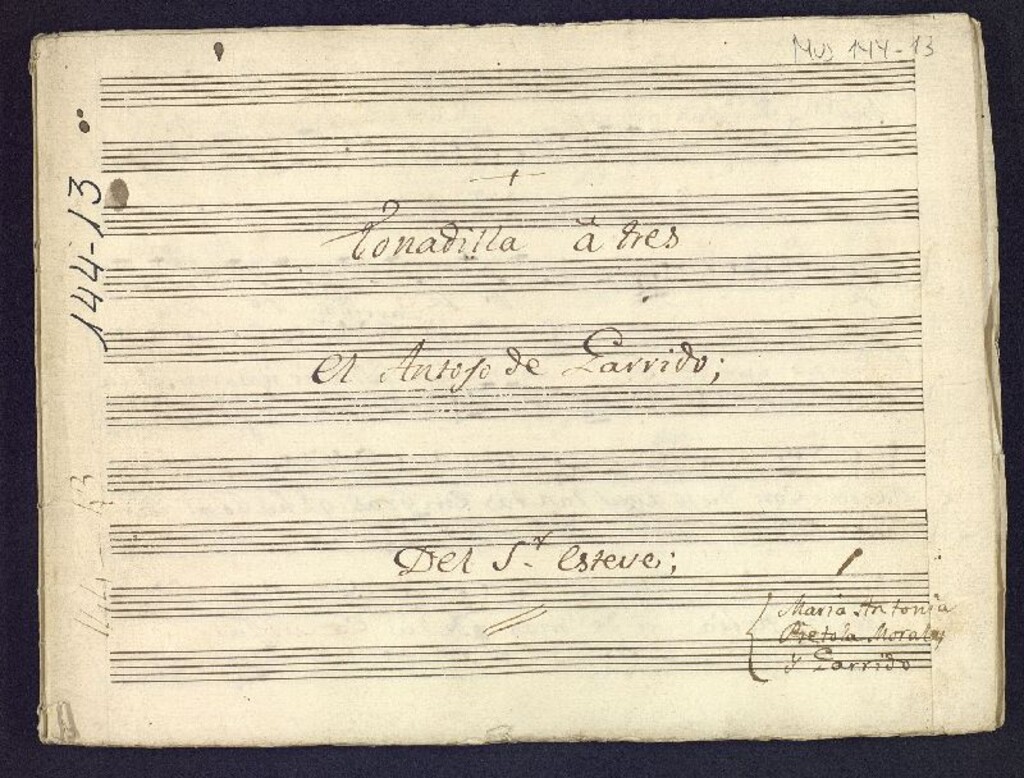 Mus 144-13
144-13
+
Tonadilla à tres
El Antojo de Garrido;
Del S.r Esteve;
Maria Antonia
Morales
y Garrido